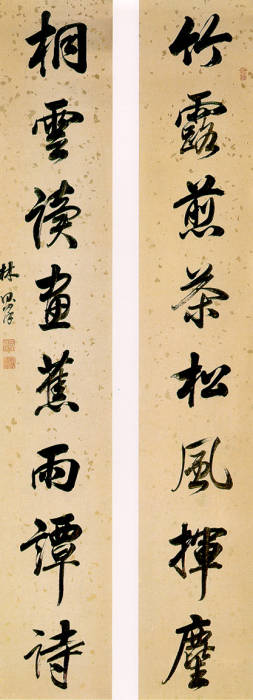 竹露煎茶松風揮塵
桐雲讀畫蕉雨譚詩
林則徐